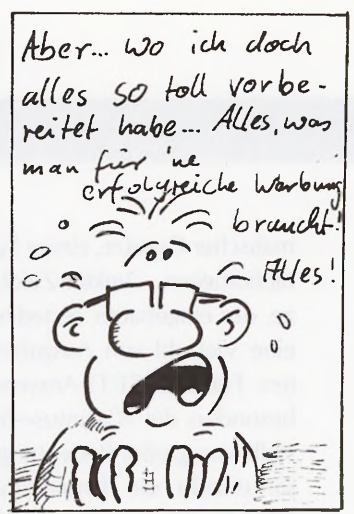 Aber... wo ich doch
alles so toll vorbe-
reitet habe... Alles, was
man für 'ne
erfolgreiche Werbung
braucht!
Alles!